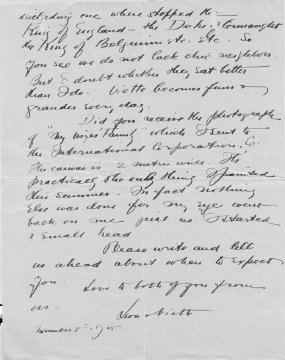 including one where stopped the
King of England - the Duke of Connaught
the King of Belgium etc. etc. - So
you see we do not lack chic neighbors.
But I doubt whether they eat better
than I do - becomes finer &
grander every day.
Did you receive the photograph
of "My Wife's Family" which I sent to
the International Corporation. Co.
The canvas is 2 metres wide. It is
practically the only thing I painted
this summer - In fact nothing
else was done for my eye went
back on me just as I started
a small head.
Please write and tell
us ahead about when to expect
you.
Love to both of you from
us -
November 8th